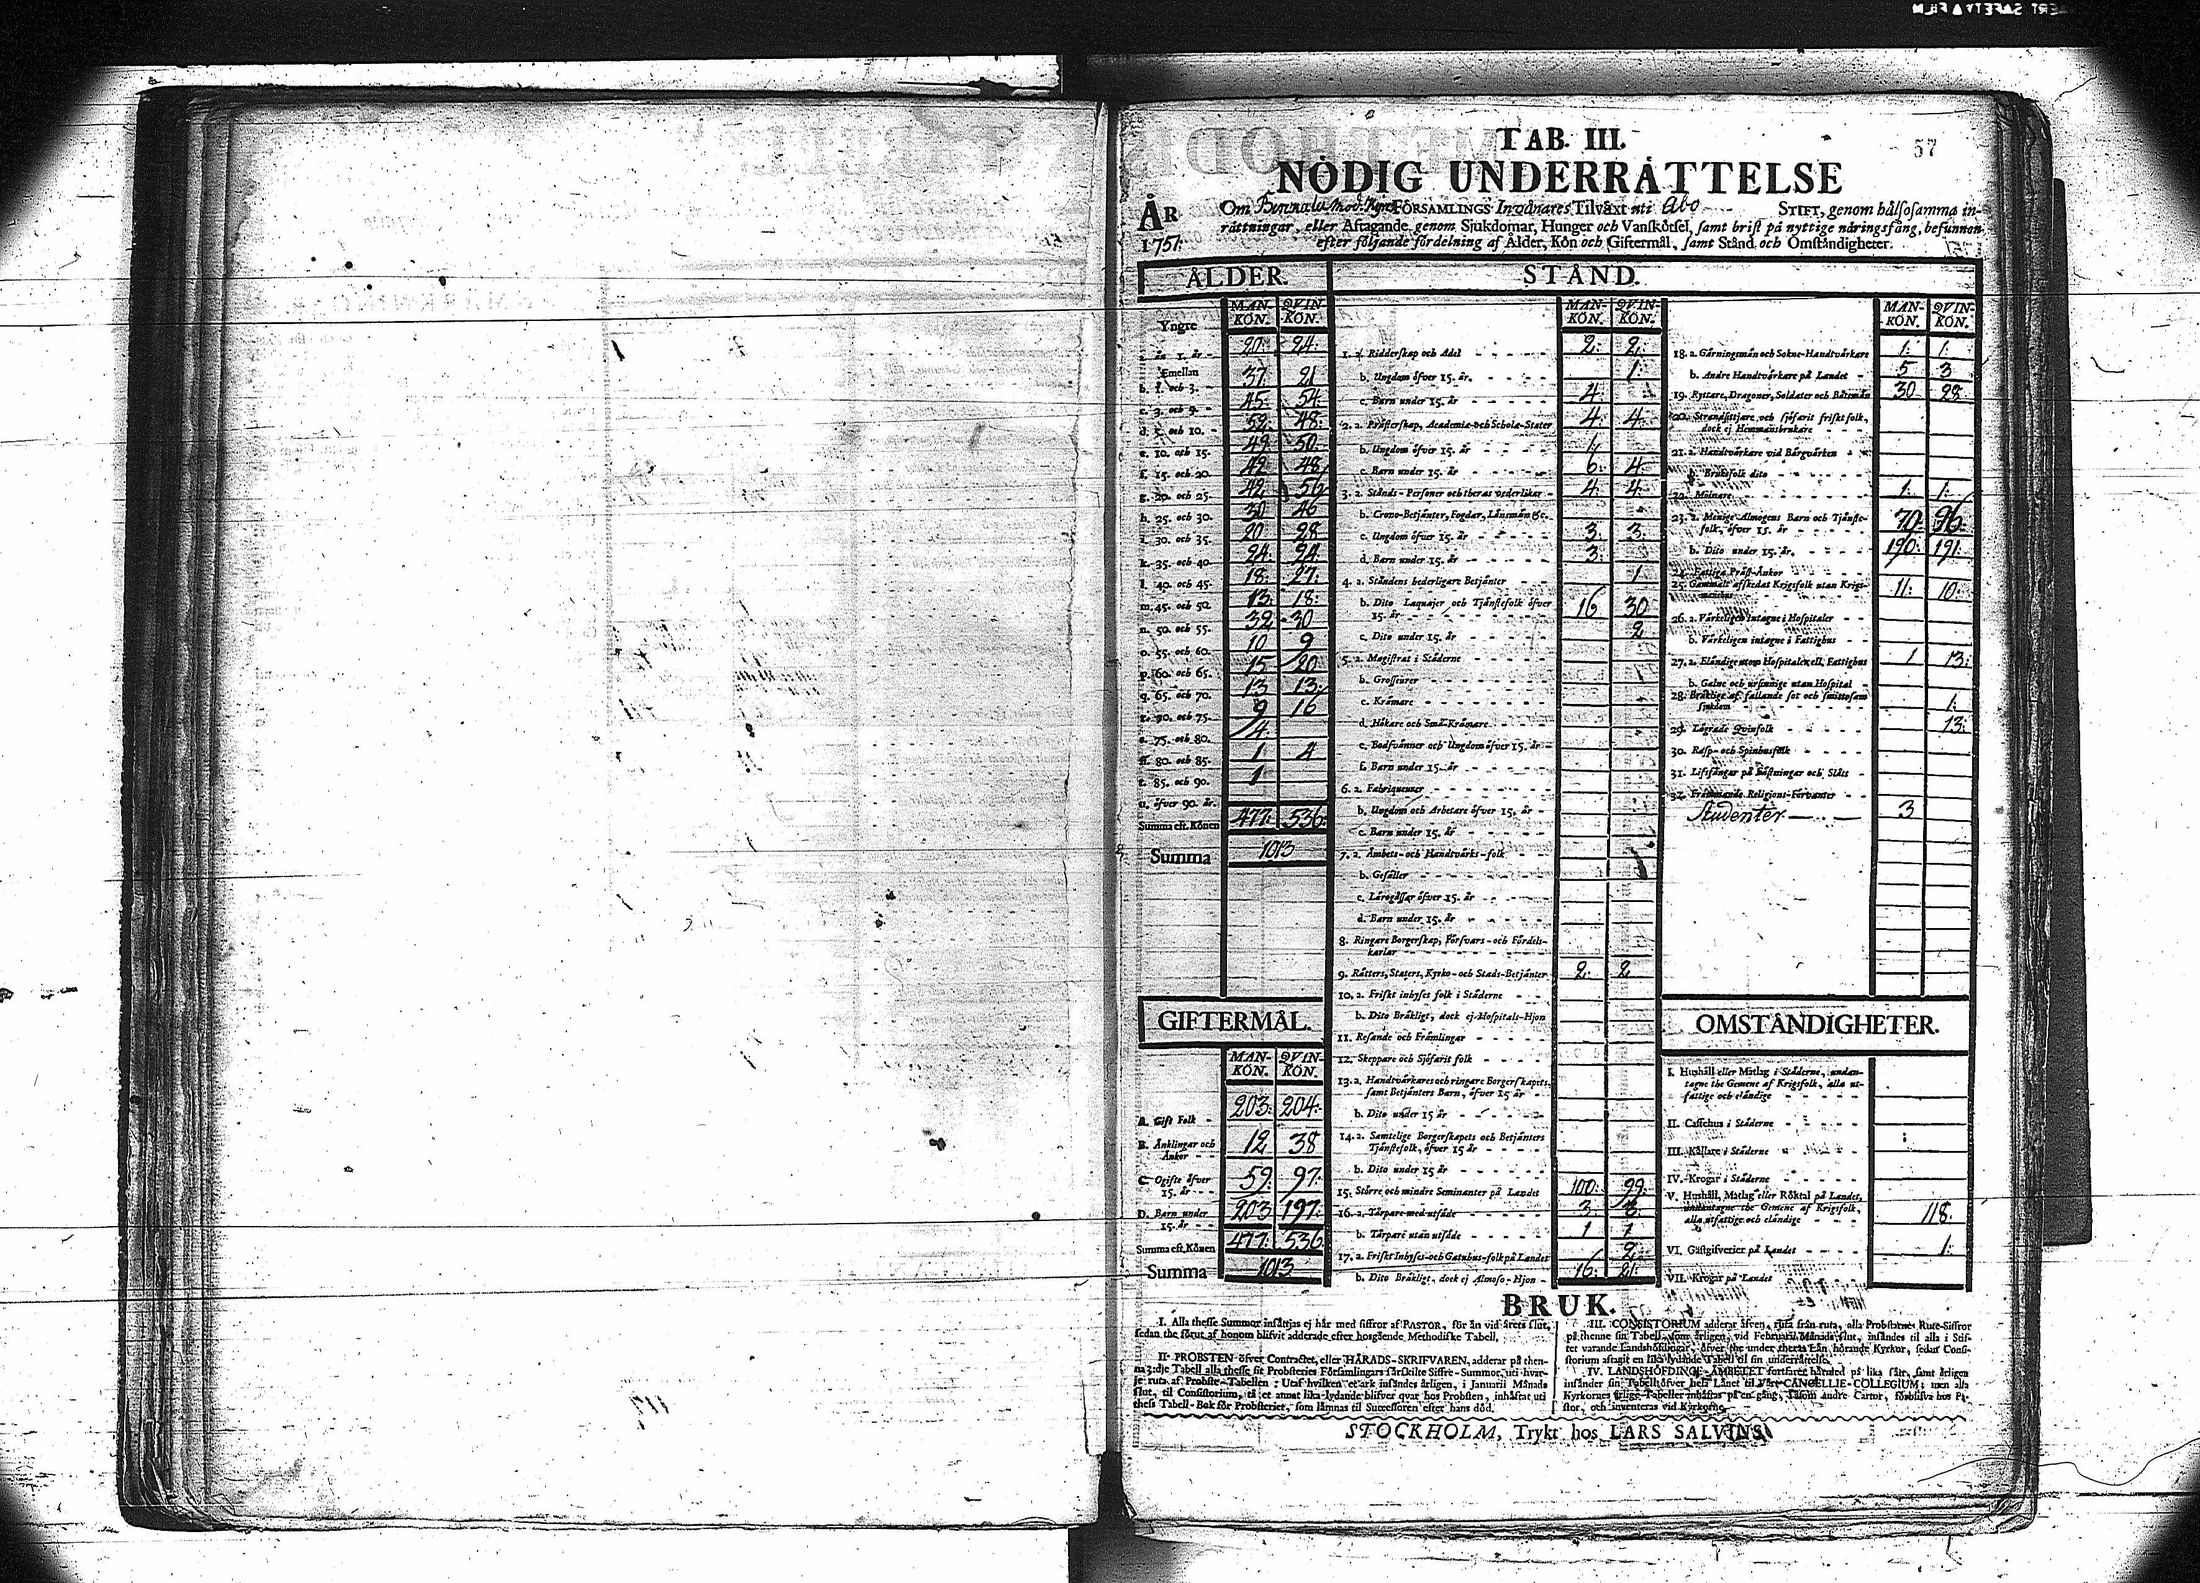 TAB. III.
57
NÖDIG UNDERRÄTTELSE
ÅR 1751.
Om Bennala Mod. Kyrc FÖRSAMLINGS Invånares Tilväxt uti Åbo STIFT, genom hälsosamma in-
rättningar, eller Aftagande genom Sjukdomar, Hunger och Vanskötsel, samt brist på nyttige näringsfång, befunnen
efter följande fördelning af Ålder, Kön och Giftermål, samt Stånd och Omständigheter.
ÅLDER.
MAN-KÖN. QVIN-KÖN.
Yngre
a. än 1. år - 20: 24:
Emellan
b. 1. och 3. - 37 21
c. 3. och 5. - 45: 54:
d. 5. och 10. - 52: 48:
e. 10. och 15. 49 50
f. 15. och 20. 42 48
g. 20. och 25. 42 56
h. 25. och 30. 30 46
i. 30. och 35. 20 28
k. 35. och 40. 24 24
l. 40. och 45. 18: 27:
m. 45. och 50. 13 18:
n. 50. och 55. 32 30
o. 55. och 60. 10 9
p. 60. och 65. 15 20
q. 65. och 70. 13 13:
r. 70. och 75. 9 16
s. 75. och 80. 4
ff. 80. och 85. 1 4
t. 85. och 90. 1
u. öfver 90. år.
Summa eft. Könen 477: 536:
Summa 1013
GIFTERMÅL.
MAN-KÖN. QVIN-KÖN.
A. Gift Folk - 203: 204:
B. Änklingar och Änkor - - 12 38
C. Ogifte öfver 15. år - - 59: 97:
D. Barn under 15. år - - 203 197:
Summa eft. Könen 477: 536
Summa 1013
STÅND.
MAN-KÖN. QVIN-KÖN.
1. a. Ridderskap och Adel 2: 2:
b. Ungdom öfver 15. år. 1:
c. Barn under 15. år 4:
2. a. Prästerskap, Academiæ och Scholæ-Stater 4: 4:
b. Ungdom öfver 15. år 1
c. Barn under 15. år 6: 4
3. a. Stånds-Personer och theras vederlikar 4: 4:
b. Crono-Betjänter, Fogdar, Länsmän &c.
c. Ungdom öfver 15. år 3: 3:
d. Barn under 15. år 3:
4. a. Ståndens hederligare Betjänter 1
b. Dito Laquajer och Tjänstefolk öfver 15. år 16 30
c. Dito under 15. år 2
5. a. Magistrat i Städerne
b. Grosseurer
c. Krämare
d. Hökare och Små-Krämare
e. Bodsvänner och Ungdom öfver 15. år
f. Barn under 15. år
6. a. Fabriqueurer
b. Ungdom och Arbetare öfver 15. år
c. Barn under 15. år
7. a. Ämbets- och Handtvärks-folk
b. Gesäller
c. Lärogåssar öfver 15. år
d. Barn under 15. år
8. Ringare Borgerskap, Försvars- och Fördelskarlar
9. Rätters, Staters, Kyrko- och Stads-Betjänter 2: 2
10. a. Friskt inhyses folk i Städerne
b. Dito Bräkligt, dock ej Hospitals-Hjon
11. Resande och Främlingar
12. Skeppare och Sjöfarit folk
13. a. Handtvärkares och ringare Borgerskapets, samt Betjänters Barn, öfver 15 år
b. Dito under 15 år
14. a. Samtelige Borgerskapets och Betjänters Tjänstefolk, öfver 15 år
b. Dito under 15 år
15. Större och mindre Seminanter på Landet 100: 99:
16. a. Tårpare med utsäde 3 3:
b. Tårpare utan utsäde 1 1
17. a. Friskt Inhyses- och Gatuhus-folk på Landet 2:
b. Dito Bräkligt, dock ej Almoso-Hjon 16: 21:
MAN-KÖN. QVIN-KÖN.
18. a. Gärningsmän och Sokne-Handtvärkare 1: 1:
b. Andre Handtvärkare på Landet 5 3
19. Ryttare, Dragoner, Soldater och Båtsmän 30 28
20. Strandsittjare och sjöfarit friskt folk, dock ej Hemmansbrukare
21. a. Handtvärkare vid Bärgvärken
b. Bruksfolk dito
22. Mölnare 1: 1:
23. a. Menige Almogens Barn och Tjänstefolk, öfver 15. år 70: 96
b. Dito under 15. år. 190: 191:
24. Fattiga Präst-Änkor
25. Gammalt afskedat Krigsfolk utan Krigsmanshus 11: 10:
26. a. Värkeligen intagne i Hospitaler
b. Värkeligen intagne i Fattighus
27. a. Eländige utom Hospitaler ell. Fattighus 1 13:
b. Galne och ursinnige utan Hospital
28. Bräklige af fallande sot och smittosam sjukdom 1:
29. Lägrade Qvinfolk 13:
30. Rasp- och Spinhusfolk
31. Lifsfångar på Fästningar och Slåts
32. Främmande Religions-Förvanter
Studenter 3
OMSTÄNDIGHETER.
I. Hushåll eller Matlag i Städerne, undantagne the Gemene af Krigsfolk, alla utfattige och eländige
II. Caffehus i Städerne
III. Källare i Städerne
IV. Krogar i Städerne
V. Hushåll, Matlag eller Röktal på Landet, undantagne the Gemene af Krigsfolk, alla utfattige och eländige 118:
VI. Gästgifverier på Landet 1:
VII. Krogar på Landet
BRUK.
I. Alla thesse Summor insättjas ej här med siffror af PASTOR, för än vid årets slut,
sedan the förut af honom blifvit adderade efter hosgående Methodiske Tabell.
II. PROBSTEN öfver Contractet, eller HÄRADS-SKRIFVAREN, adderar på then-
na 3:die Tabell alla thesse sit Probsteries Församlingars särskilte Siffre-Summor, uti hvar-
je ruta af Probste-Tabellen; Utaf hvilken et ark insändes årligen, i Januarii Månads
slut, til Consistorium, så et annat lika lydande blifver qvar hos Probsten, inhäftat uti
thess Tabell-Bok för Probsteriet, som lämnas til Successoren efter hans död.
III. CONSISTORIUM adderar äfven, ruta från ruta, alla Probstarnes Rute-Siffror
på thenne sin Tabell, som årligen, vid Februarii Månads slut, insändes til alla i Stif-
tet varande Landshöfdingar, öfver the under theras Län hörande Kyrkor, sedan Consi-
storium aftagit en lika lydande Tabell til sin underrättelse.
IV. LANDSHÖFDINGE-ÄMBETET fortfarer härmed på lika sätt, samt årligen
insänder sin Tabell öfver hela Länet til Vårt CANCELLIE-COLLEGIUM; men alla
Kyrkornes årlige Tabeller inhäftas på en gång, såsom andre Cartor, förblifva hos Pa-
stor, och inventeras vid Kyrkorne.
STOCKHOLM, Trykt hos LARS SALVIUS